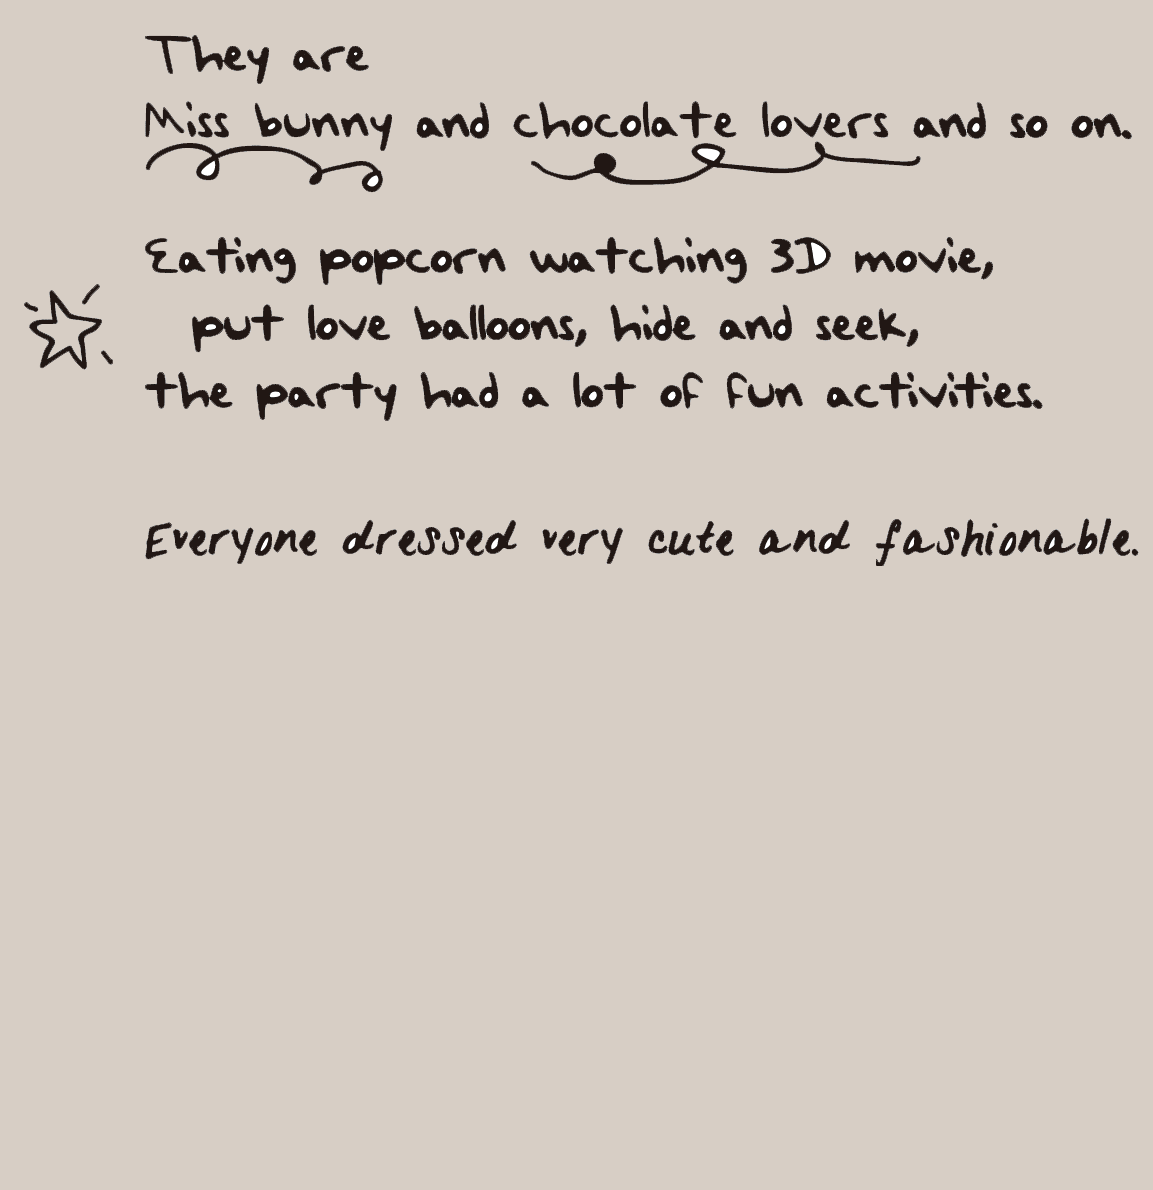 They are
Miss bunny and chocolate lovers and so on.
Eating popcorn watching 3D movie,
put love balloons, hide and seek,
the party had a lot of fun activities.
Everyone dressed very cute and fashionable.